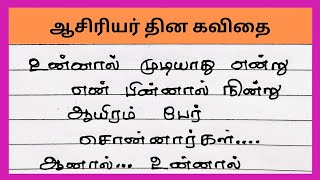 ஆசிரியர் தின கவிதை
உன்னால் முடியாது என்று
என் பின்னால் நின்று
ஆயிரம் பேர்
சொன்னார்கள்....
ஆனால்... உன்னால்